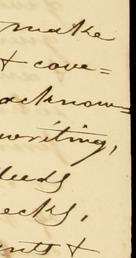 make
& cove=
acknow=
writing,
deeds
ecks,
&